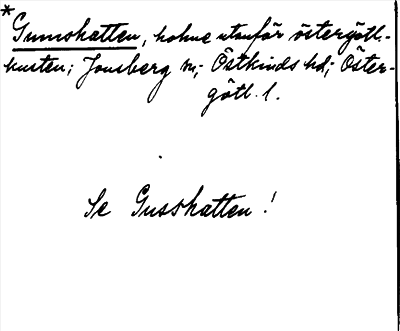 *
Gunnshatten, holme utanför östergötl.-
kusten; Jonsberg sn; Östkinds hd; Öster-
götl. l.
Se Gusshatten!